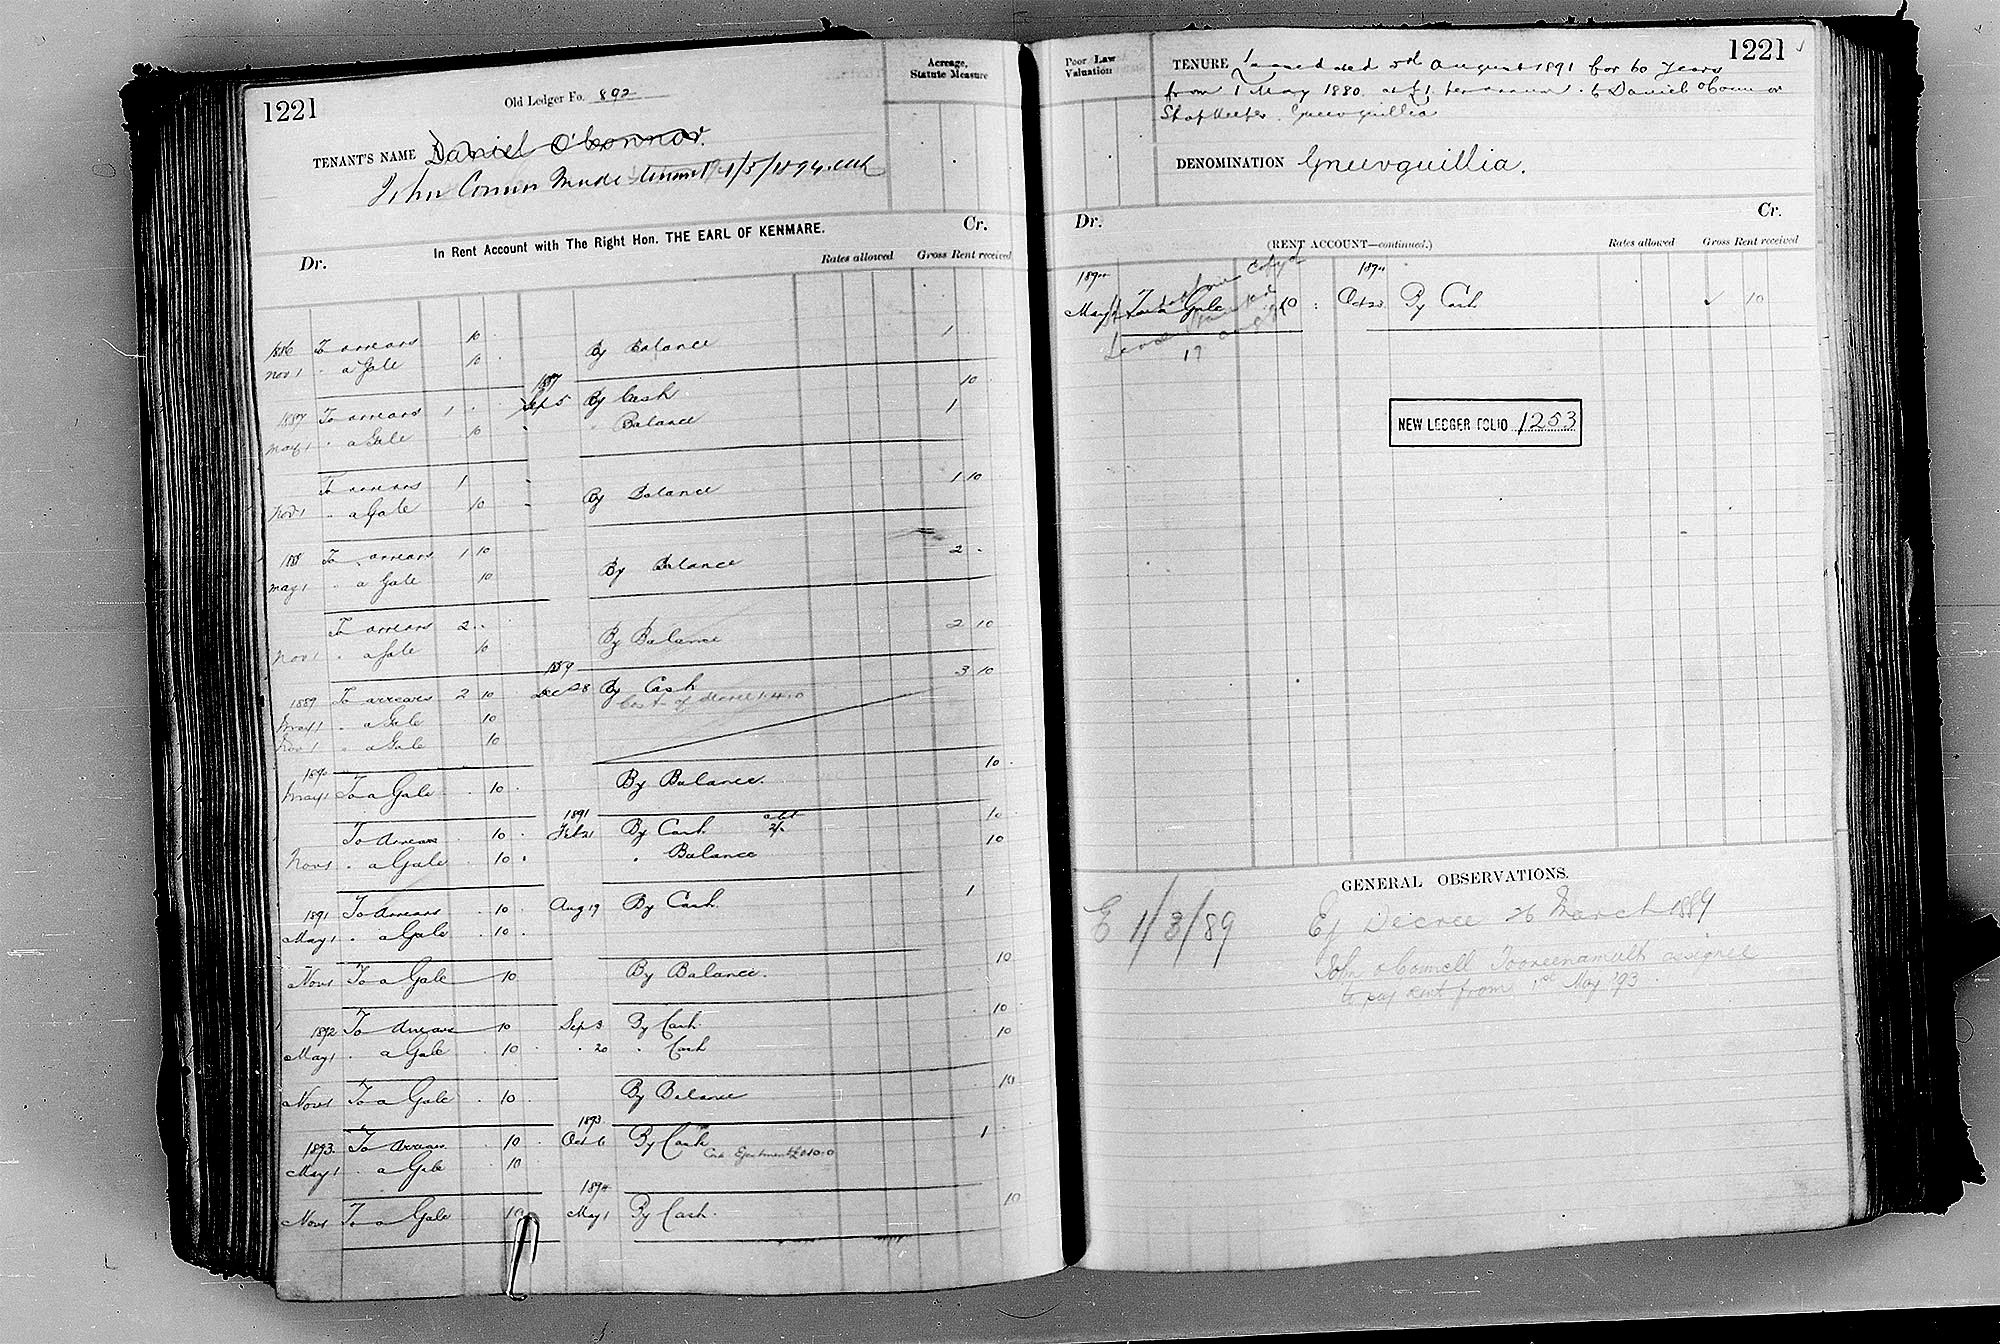 1221
Old Ledger Fo. 892
Acreage, Statute Measure
TENANT'S NAME Daniel O'Connor.
John Connor made tenant 1/5/1894.
In Rent Account with The Right Hon. THE EARL OF KENMARE.
Dr. Cr.
Rates allowed Gross Rent received
1886 To arrears 10
Nov 1 " a Gale 10 By Balance 1
1887 To arrears 1 . . 1887 Sep 5 By Cash 10
May 1 " a Gale 10 " Balance 1
To arrears 1
Nov 1 " a Gale 10 By Balance 1 10
1888 To arrears 1 10
May 1 " a Gale 10 By Balance 2 -
To arrears 2 . .
Nov 1 " a Gale 10 By Balance 2 10
1889 To arrears 2 10 1889 Dec 28 By Cash 3 10
May 1 " a Gale 10 Cost of 1.4.0
Nov 1 " a Gale 10
1890
May 1 To a Gale . 10 . By Balance. 10 .
To Arrears . 10 . 1891 Feb 21 By Cash 10
Nov 1 . a Gale . 10 . " Balance 10
1891 To Arrears . 10 . Aug 19 By Cash 1
May 1 . a Gale . 10 .
Nov 1 To a Gale 10 By Balance. 10
1892 To Arrears 10 Sep 3 By Cash. 10
May 1 . a Gale . 10 . . 20 . Cash 10
Nov 1 To a Gale . 10 . By Balance 10
1893 To Arrears. . 10 . 1893 Oct 6 By Cash. 1
May 1 . a Gale . 10 Cost Ejectment
1894
Nov 1 To a Gale 10 May 1 By Cash. 10
Poor Law Valuation
1221
TENURE Lease dated August 1891 for 60 years
from 1 May 1880 at £1 per annum to Daniel O'Connor
Shopkeeper. Gneevguillia
DENOMINATION Gneevguillia.
Dr. Cr.
(RENT ACCOUNT—continued.) Rates allowed Gross Rent received
1894 1894
May 1 To a Gale 10 : Oct 20 By Cash ✓ 10
NEW LEDGER FOLIO 1253
GENERAL OBSERVATIONS.
E 1/3/89 Ej Decree 26 March 1889
John O'Connell Tooreenamult assignee
to pay rent from 1st May '93